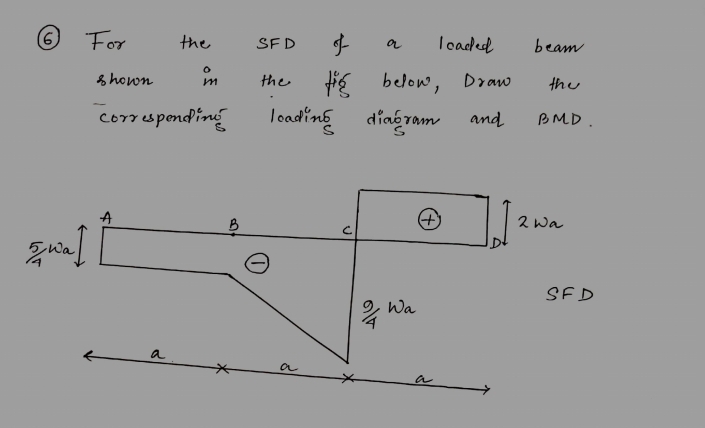 6 For the SFD of a loaded beam
shown in the fig below, Draw the
corresponding loading diagram and BMD.
A
B
C
+
2 Wa
5/4 Wa
D
−
SFD
9/4 Wa
a
a
a